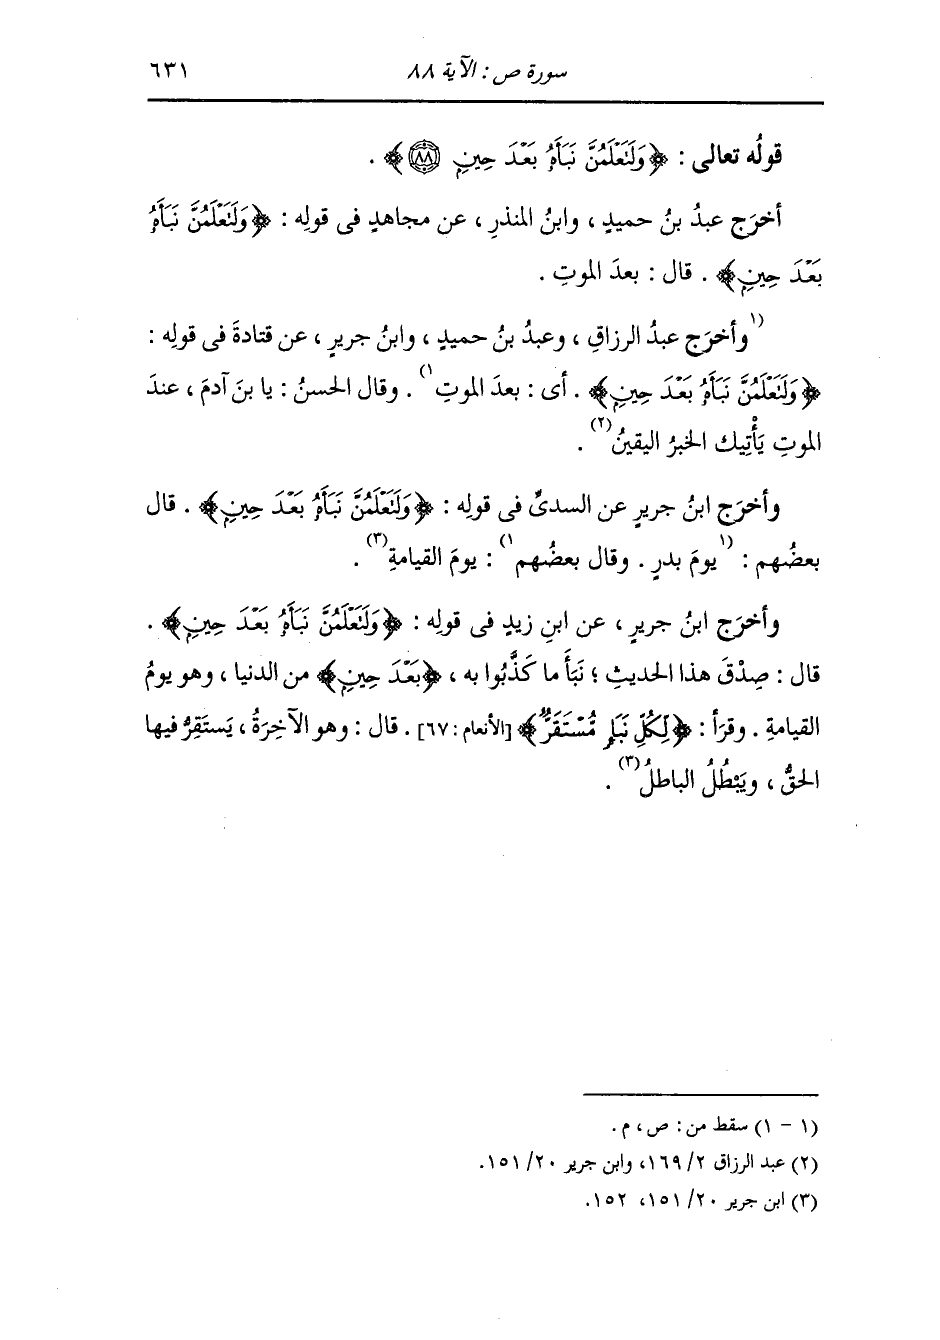 سورة ص : الآية ٨٨ ٦٣١
قولُه تعالى : ﴿وَلَتَعْلَمُنَّ نَبَأَهُ بَعْدَ حِينٍ ﴿٨٨﴾﴾ .
أخرَج عبدُ بنُ حميدٍ ، وابنُ المنذرِ ، عن مجاهدٍ فى قولِه : ﴿وَلَتَعْلَمُنَّ نَبَأَهُ
بَعْدَ حِينٍ﴾ . قال : بعدَ الموتِ .
(١ وأخرَج عبدُ الرزاقِ ، وعبدُ بنُ حميدٍ ، وابنُ جريرٍ ، عن قتادةَ فى قولِه :
﴿وَلَتَعْلَمُنَّ نَبَأَهُ بَعْدَ حِينٍ﴾ . أى : بعدَ الموتِ ١) . وقال الحسنُ : يا بنَ آدمَ ، عندَ
الموتِ يَأْتِيك الخبرُ اليقينُ (٢) .
وأخرَج ابنُ جريرٍ عن السدىِّ فى قولِه : ﴿وَلَتَعْلَمُنَّ نَبَأَهُ بَعْدَ حِينٍ﴾ . قال
بعضُهم : (١ يومَ بدرٍ . وقال بعضُهم ١) : يومَ القيامةِ (٣) .
وأخرَج ابنُ جريرٍ ، عن ابنِ زيدٍ فى قولِه : ﴿وَلَتَعْلَمُنَّ نَبَأَهُ بَعْدَ حِينٍ﴾ .
قال : صِدْقَ هذا الحديثِ ؛ نَبَأَ ما كَذَّبُوا به ، ﴿بَعْدَ حِينٍ﴾ من الدنيا ، وهو يومُ
القيامةِ . وقرَأ : ﴿لِكُلِّ نَبَإٍ مُّسْتَقَرٌّ﴾ [الأنعام : ٦٧] . قال : وهو الآخِرَةُ ، يَستَقِرُّ فيها
الحقُّ ، ويَبْطُلُ الباطلُ (٣) .
(١ - ١) سقط من : ص ، م .
(٢) عبد الرزاق ٢/ ١٦٩، وابن جرير ٢٠/ ١٥١.
(٣) ابن جرير ٢٠/ ١٥١، ١٥٢.